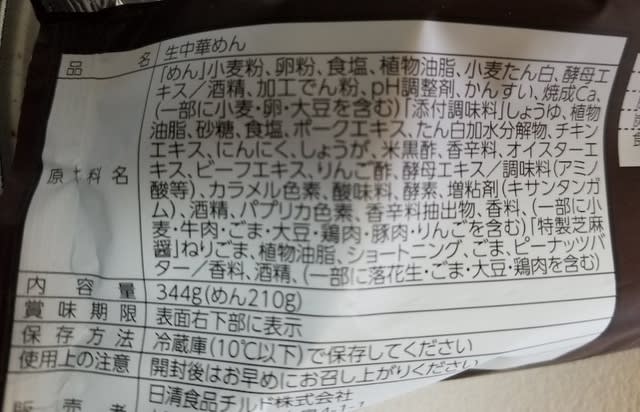 品 名 生中華めん
原 料名 「めん」小麦粉、卵粉、食塩、植物油脂、小麦たん白、酵母エ
キス/酒精、加工でん粉、pH調整剤、かんすい、焼成Ca、
(一部に小麦・卵・大豆を含む)「添付調味料」しょうゆ、植物
油脂、砂糖、食塩、ポークエキス、たん白加水分解物、チキン
エキス、にんにく、しょうが、米黒酢、香辛料、オイスターエ
キス、ビーフエキス、りんご酢、酵母エキス/調味料(アミノ
酸等)、カラメル色素、酸味料、酵素、増粘剤(キサンタンガ
ム)、酒精、パプリカ色素、香辛料抽出物、香料、(一部に小
麦・牛肉・ごま・大豆・鶏肉・豚肉・りんごを含む)「特製芝麻
醤」ねりごま、植物油脂、ショートニング、ごま、ピーナッツバ
ター/香料、酒精、(一部に落花生・ごま・大豆・鶏肉を含む)
内容量 344g(めん210g)
賞味期限 表面右下部に表示
保存方法 冷蔵庫(10℃以下)で保存してください
使用上の注意 開封後はお早めにお召し上がりください
販売者 日清食品チルド株式会社